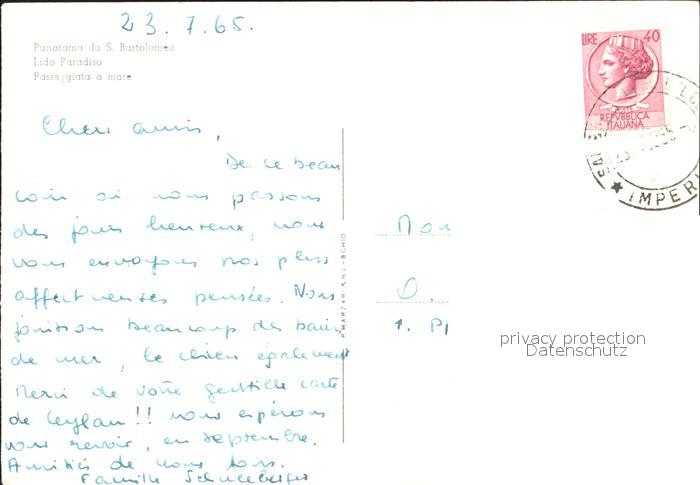 23.7.65.
Panorama da S. Bartolomeo
Lido Paradiso
Passeggiata a mare
LIRE 40
POSTE
REPVBBLICA
ITALIANA
IMPERI
Chers amis,
De ce beau
coin où nous passons
des jours heureux, nous
vous envoyons nos plus
affectueuses pensées. Nous
jouissons beaucoup des bains
de mer, le chien également
Merci de votre gentille carte
de Ceylan!! nous espérons
vous revoir, en septembre.
Amitiés de nous tous.
Famille Schneeberger
Mon
O.
1. Pl
privacy protection
Datenschutz